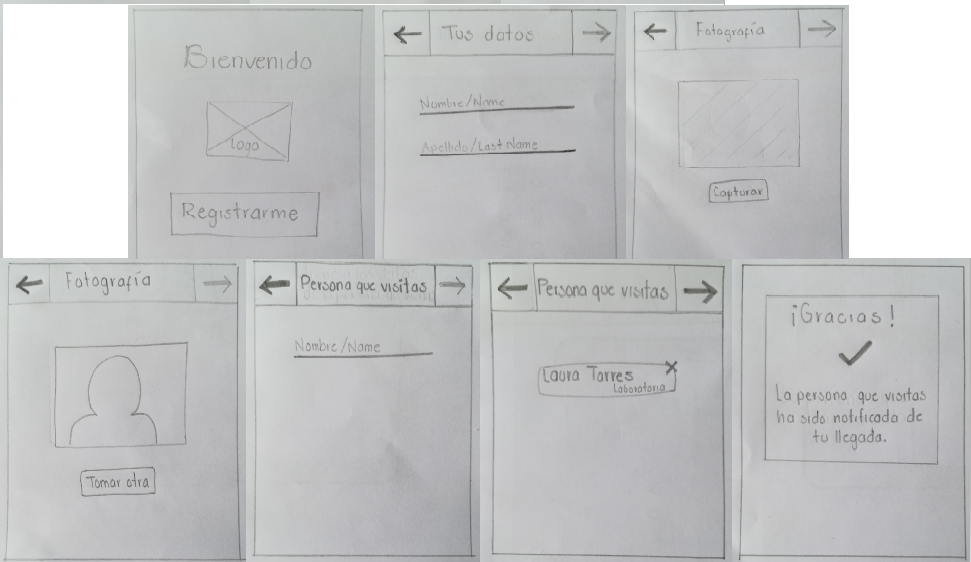 Bienvenido
Logo
Registrarme
Tus datos
Nombre/Name
Apellido/Last Name
Fotografía
Capturar
Fotografía
Tomar otra
Persona que visitas
Nombre/Name
Persona que visitas
Laura Torres
Laboratorio
¡Gracias!
La persona que visitas
ha sido notificada de
tu llegada.